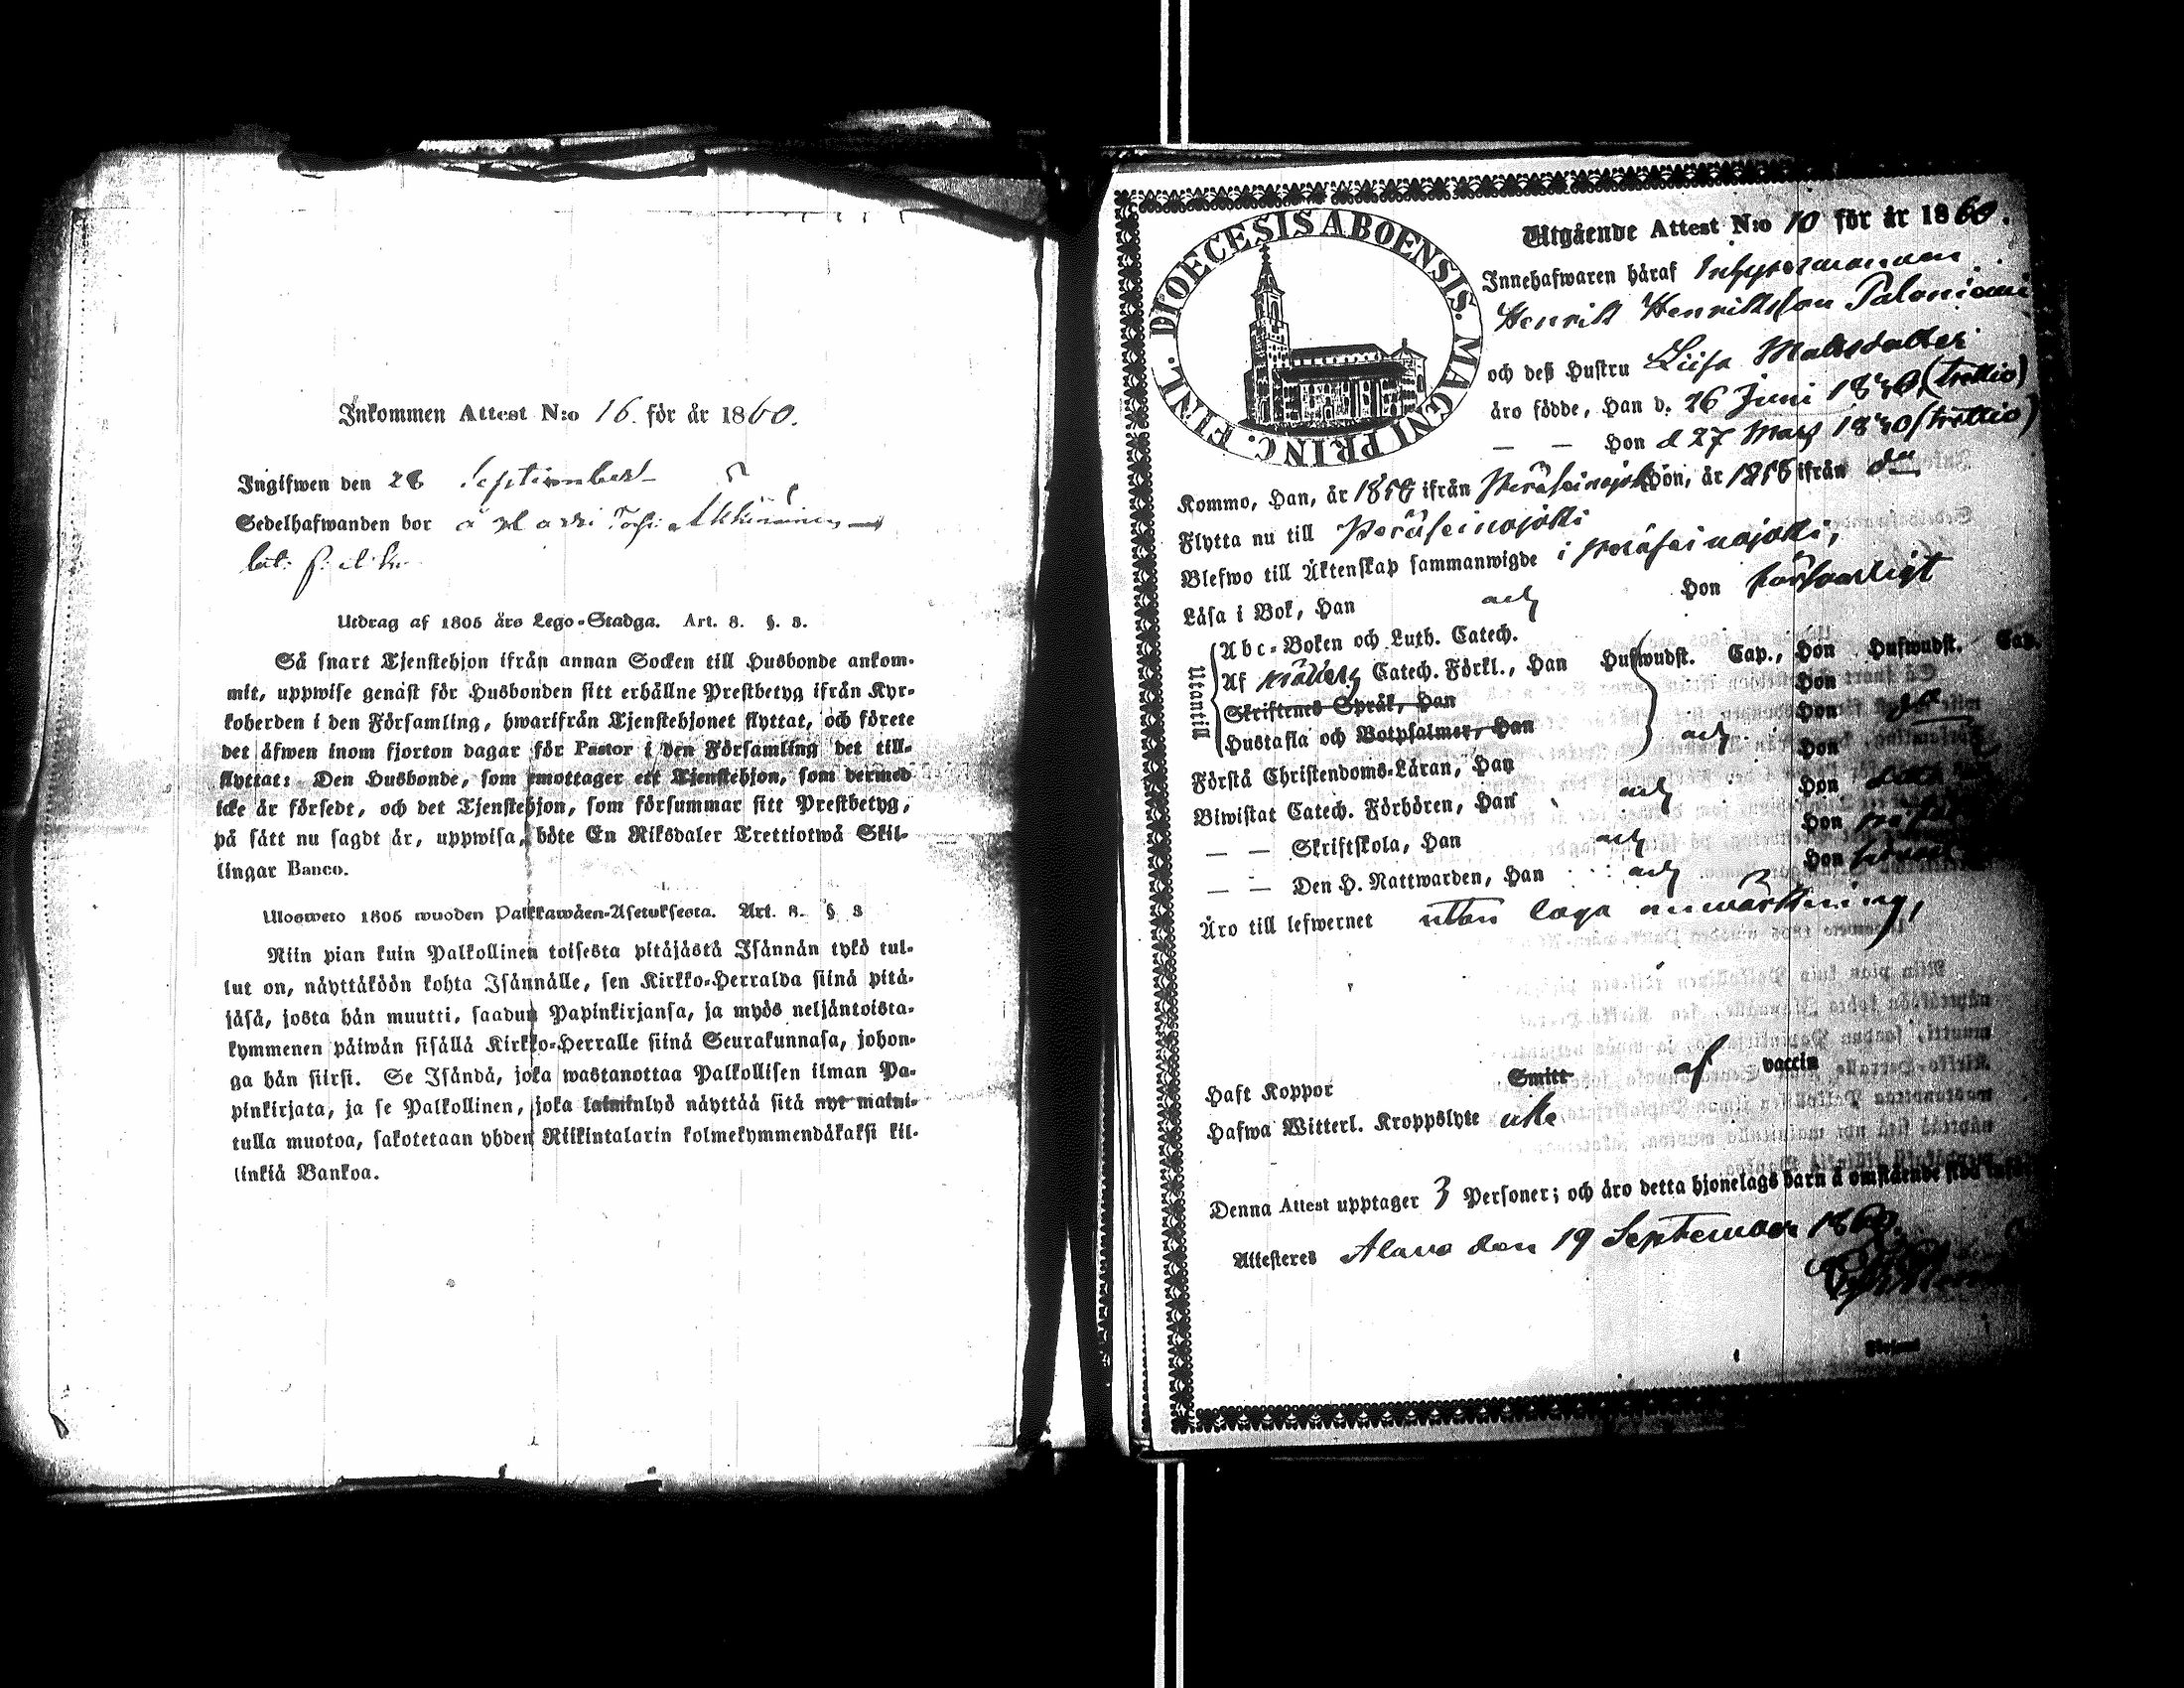 Inkommen Attest N:o 16. för år 1860.
Ingifwen den 28 September
Sedelhafwanden bor å
Utdrag af 1805 års Lego-Stadga. Art. 8. §. 3.
Så snart Tjenstehjon ifrån annan Socken till Husbonde ankom-
mit, uppwise genast för Husbonden sitt erhållne Prestbetyg ifrån Kyr-
koherden i den Församling, hwarifrån Tjenstehjonet flyttat, och förete
det äfwen inom fjorton dagar för Pastor i den Församling det till-
flyttat: Den Husbonde, som emottager ett Tjenstehjon, som dermed
icke är försedt, och det Tjenstehjon, som försummar sitt Prestbetyg,
på sätt nu sagdt är, uppwisa, böte En Riksdaler Trettiotwå Skil-
lingar Banco.
Ulosweto 1805 wuoden Palkkawäen-Asetuksesta. Art. 8. § 3
Niin pian kuin Palkollinen toisesta pitäjästä Isännän tykö tul-
lut on, näyttäköön kohta Isännälle, sen Kirkko-Herralda siinä pitä-
jäsä, josta hän muutti, saadun Papinkirjansa, ja myös neljäntoista-
kymmenen päiwän sisällä Kirkko-Herralle siinä Seurakunnasa, johon-
ga hän siirsi. Se Isändä, joka wastanottaa Palkollisen ilman Pa-
pinkirjata, ja se Palkollinen, joka laiminlyö näyttää sitä nyt maini-
tulla muotoa, sakotetaan yhden Riikintalarin kolmekymmendäkaksi kil-
linkiä Bankoa.
DIOECESIS ABOENSIS. MAGNI PRINC. FINL.
Utgående Attest N:o 10 för år 1860.
Innehafwaren häraf Inhysesmannen
Henrik Henriksson Paloniemi
och deß Hustru Liisa Mattsdotter
äro födde, Han d. 26 Juni 1830 (trettio)
— — Hon d 27 Mars 1830 (trettio)
Kommo, Han, år 1858 ifrån Peräseinäjoki Hon, år 1858 ifrån do
Flytta nu till Peräseinäjoki
Blefwo till Äktenskap sammanwigde i Peräseinäjoki,
Läsa i Bok, Han och Hon försvarligt
Utantill
Abc-Boken och Luth. Catech.
Af Catech. Förkl., Han Hufwudst. Cap., Hon Hufwudst. Cap.
Skriftenes Språk, Han Hon
Hustafla och Botpsalmer, Han och Hon
Förstå Christendoms-Läran, Han Hon
Biwistat Catech. Förhören, Han och Hon
— — Skriftskola, Han och Hon
— — Den H. Nattwarden, Han och Hon
Äro till lefwernet utan laga anmärkning,
Haft Koppor Smitt af vaccin
Hafwa Witterl. Kroppslyte icke
Denna Attest upptager 3 Personer; och äro detta hjonelags barn å omstående sida
Attesteres Alavo den 19 September 1860.